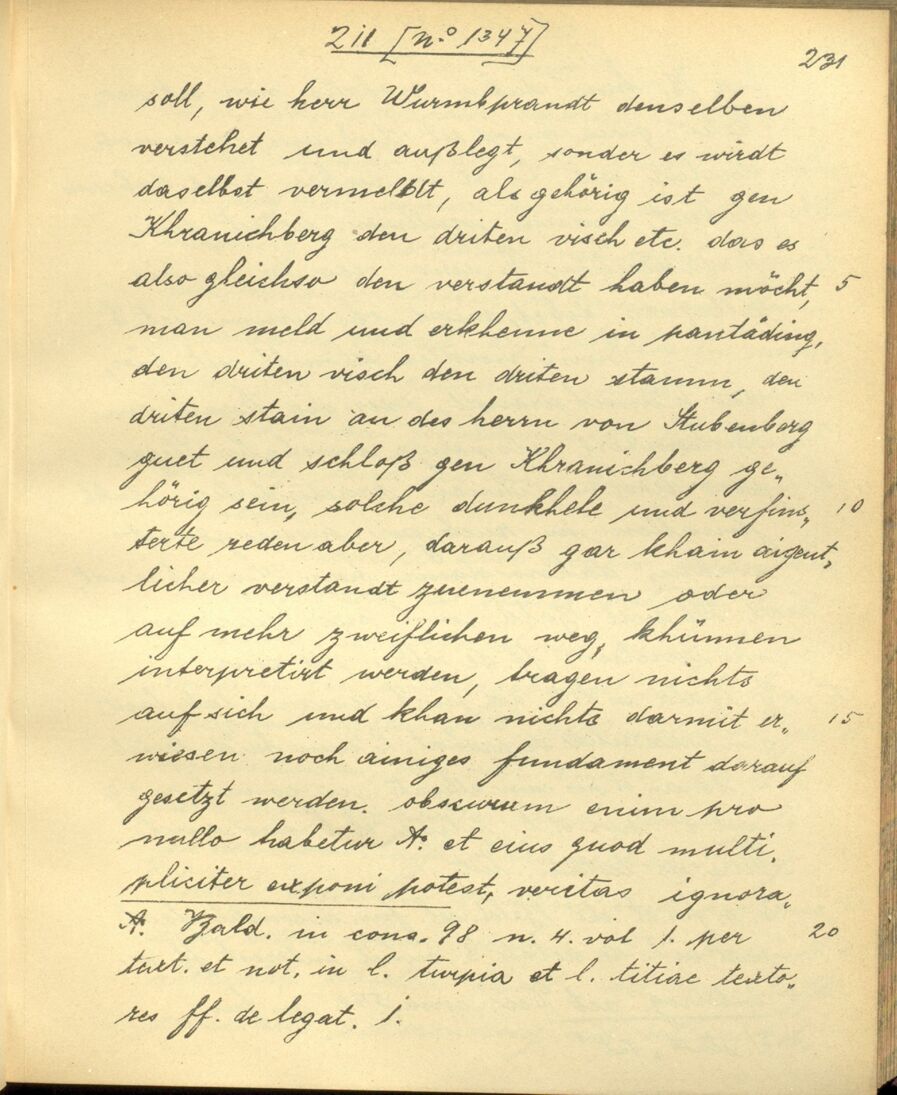 211 [n.o 1347]
231
soll, wie herr Wurmbprandt denselben
verstehet und außlegt, sonder es wirdt
daselbst vermeldt, als gehörig ist gen
Khranichberg den driten visch etc. das es
also gleichso den verstandt haben möcht, 5
man meld und erkhenne in pantäding,
den driten visch den driten stamm, den
driten stain an des herrn von Stubenberg
guet und schloß gen Khranichberg ge„
hörig sein, solche dunkhele und verfins„ 10
terte reden aber, darauß gar khain aigent„
licher verstandt zuenemmen oder
auf mehr zweiflichen weg, khünnen
interpretirt werden, tragen nichts
auf sich und khan nichts darmit er„ 15
wiesen noch ainiges fundament darauf
gesetzt werden. obscurum enim pro
nullo habetur A. et eius quod multi„
pliciter exponi potest, veritas ignora„
A. Bald. in cons. 98 n. 4. vol 1. per 20
text. et not. in l. turpia et l. titiae texto„
res ff. de legat. 1.